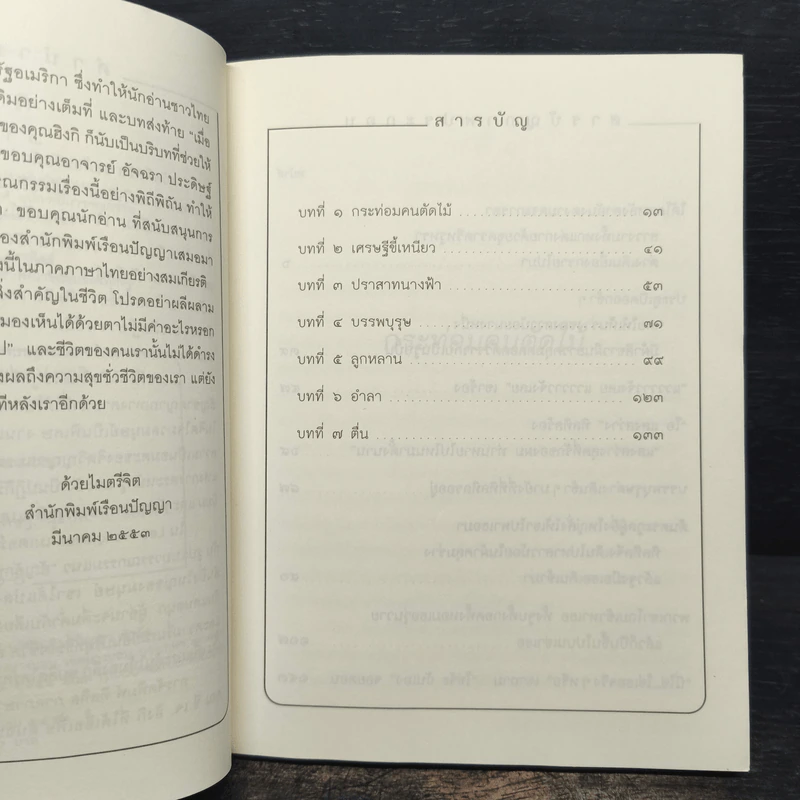 รัฐอเมริกา ซึ่งทำให้นักอ่านชาวไทย
ดิมอย่างเต็มที่ และบทส่งท้าย "เมื่อ
ของคุณฮิงกิ ก็นับเป็นบริบทที่ช่วยให้
ขอบคุณอาจารย์ อัจฉรา ประดิษฐ์
รณกรรมเรื่องนี้อย่างพิถีพิถัน ทำให้
ขอบคุณนักอ่าน ที่สนับสนุนการ
องสำนักพิมพ์เรือนปัญญาเสมอมา
งนี้ในภาคภาษาไทยอย่างสมเกียรติ
สิ่งสำคัญในชีวิต โปรดอย่าผลีผลาม
มองเห็นได้ด้วยตาไม่มีค่าอะไรหรอก
ป" และชีวิตของคนเรานั้นไม่ได้ดำรง
งผลถึงความสุขชั่วชีวิตของเรา แต่ยัง
ทีหลังเราอีกด้วย
ด้วยไมตรีจิต
สำนักพิมพ์เรือนปัญญา
มีนาคม ๒๕๕๓
สารบัญ
บทที่ ๑ กระท่อมคนตัดไม้ ๑๓
บทที่ ๒ เศรษฐีขี้เหนียว ๔๑
บทที่ ๓ ปราสาทนางฟ้า ๕๓
บทที่ ๔ บรรพบุรุษ ๗๑
บทที่ ๕ ลูกหลาน ๙๙
บทที่ ๖ อำลา ๑๒๓
บทที่ ๗ ตื่น ๑๓๓